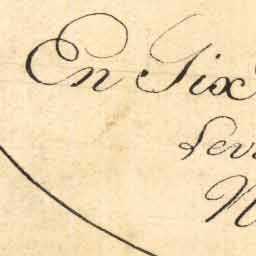 En Six
Lev
N